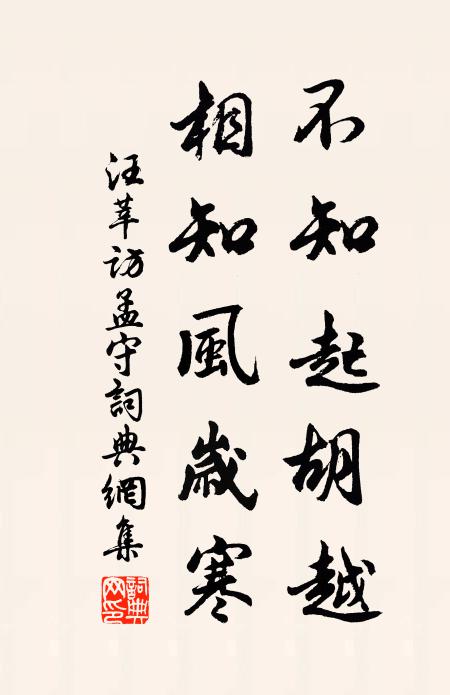 不知起胡越
相知風歲寒
汪莘訪孟守詞典網集
詞典
网印